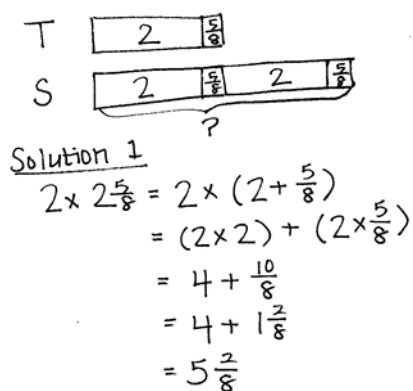 T 2 5/8
S 2 5/8 2 5/8
?
Solution 1
2 × 2 5/8 = 2 × (2 + 5/8)
= (2 × 2) + (2 × 5/8)
= 4 + 10/8
= 4 + 1 2/8
= 5 2/8